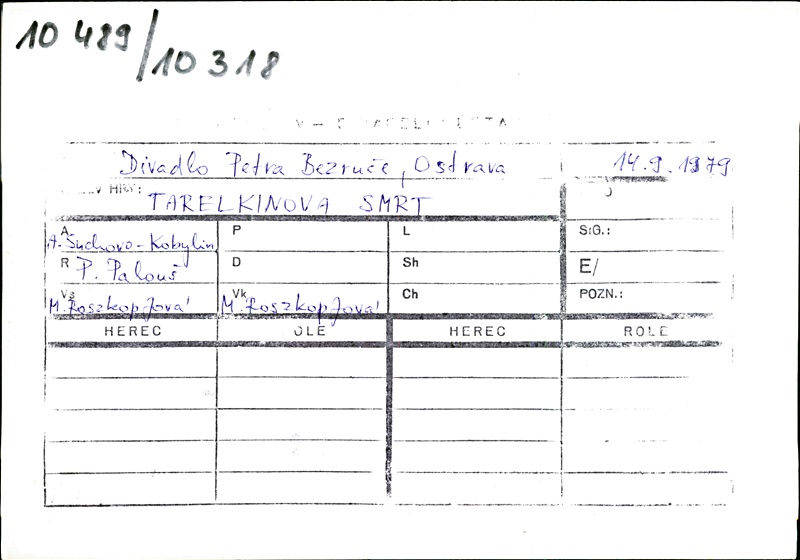 10 489/10 318
Divadlo Petra Bezruče, Ostrava 14.9.1979
HRY:
TARELKINOVA SMRT
A P L SIG.:
A. Suchovo-Kobylin
R D Sh E/
P. Palouš
Vs Vk Ch POZN.:
M. Roszkopfová M. Roszkopfová
HEREC OLE HEREC ROLE